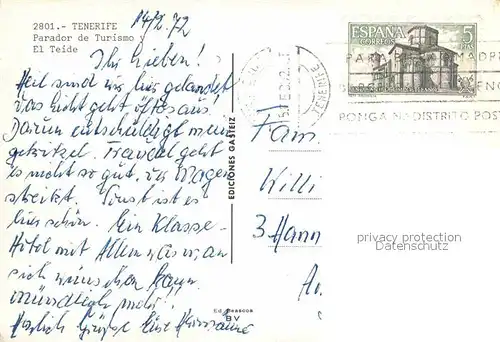 2801.- TENERIFE
Parador de Turismo y
El Teide
14/2.72
Ihr Lieben!
Heil sind wir hier gelandet
das geht öfters aus!
Darum entschuldigt mein
gekritzel. Traudel geht
es nicht so gut, der Magen
streikt. Sonst ist es
hier schön. Ein Klasse-
Hotel mit Allem was man
sich wünschen kann.
mündlich mehr!
Herzlich Grüße Eure
EDICIONES GASTEIZ
Ed. Beascoa
BV
ESPAÑA
CORREOS
5
PTAS
TENERIFE
PONGA DISTRITO POST
Fam
Willi
3 Hann
privacy protection
Datenschutz